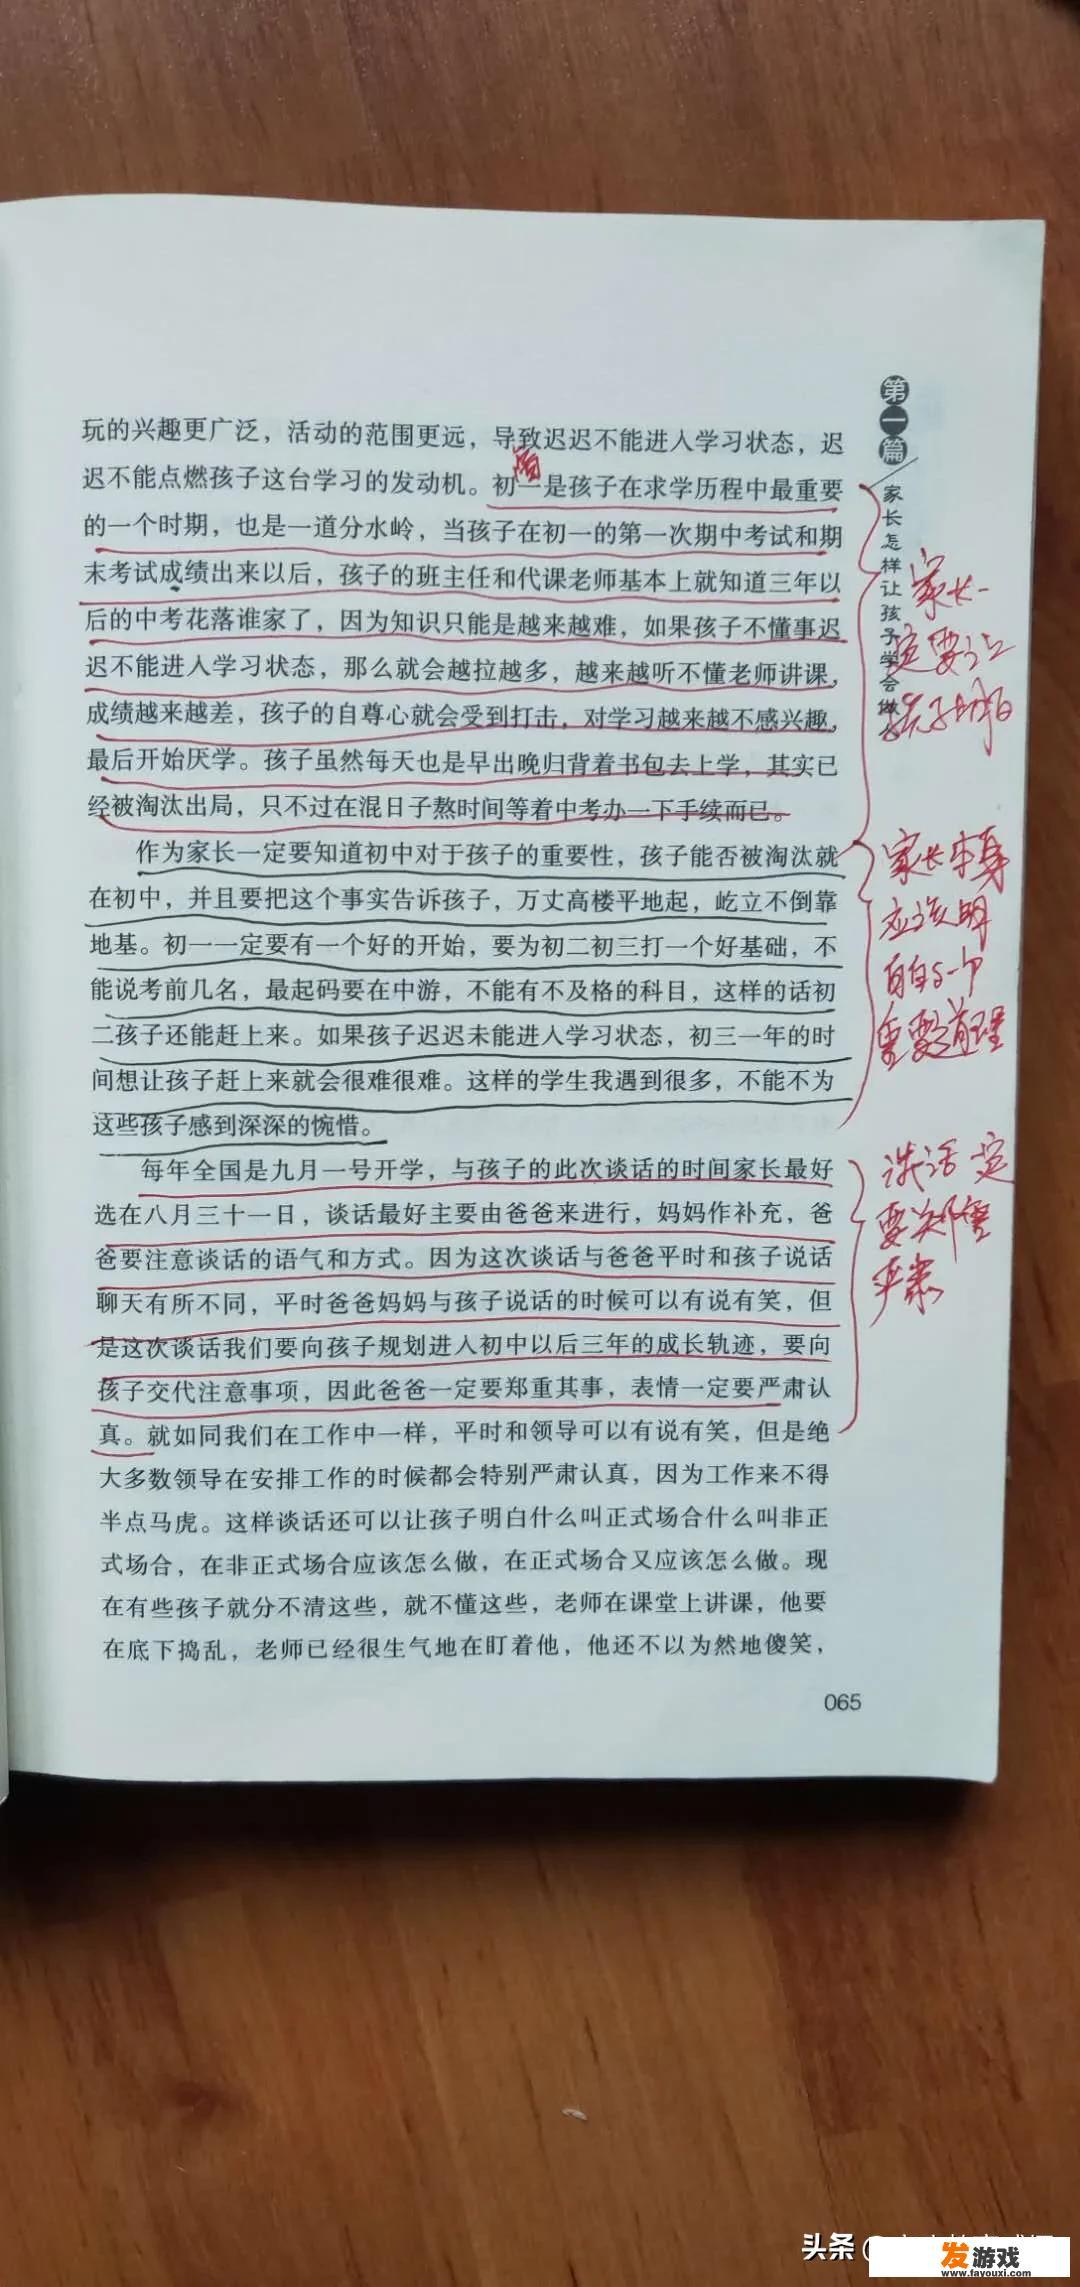 第一篇
家长怎样让孩子学会做
玩的兴趣更广泛，活动的范围更远，导致迟迟不能进入学习状态，迟
迟不能点燃孩子这台学习的发动机。初一是孩子在求学历程中最重要
的一个时期，也是一道分水岭，当孩子在初一的第一次期中考试和期
末考试成绩出来以后，孩子的班主任和代课老师基本上就知道三年以
后的中考花落谁家了，因为知识只能是越来越难，如果孩子不懂事迟
迟不能进入学习状态，那么就会越拉越多，越来越听不懂老师讲课，
成绩越来越差，孩子的自尊心就会受到打击，对学习越来越不感兴趣，
最后开始厌学。孩子虽然每天也是早出晚归背着书包去上学，其实已
经被淘汰出局，只不过在混日子熬时间等着中考办一下手续而已。
作为家长一定要知道初中对于孩子的重要性，孩子能否被淘汰就
在初中，并且要把这个事实告诉孩子，万丈高楼平地起，屹立不倒靠
地基。初一一定要有一个好的开始，要为初二初三打一个好基础，不
能说考前几名，最起码要在中游，不能有不及格的科目，这样的话初
二孩子还能赶上来。如果孩子迟迟未能进入学习状态，初三一年的时
间想让孩子赶上来就会很难很难。这样的学生我遇到很多，不能不为
这些孩子感到深深的惋惜。
每年全国是九月一号开学，与孩子的此次谈话的时间家长最好
选在八月三十一日，谈话最好主要由爸爸来进行，妈妈作补充，爸
爸要注意谈话的语气和方式。因为这次谈话与爸爸平时和孩子说话
聊天有所不同，平时爸爸妈妈与孩子说话的时候可以有说有笑，但
是这次谈话我们要向孩子规划进入初中以后三年的成长轨迹，要向
孩子交代注意事项，因此爸爸一定要郑重其事，表情一定要严肃认
真。就如同我们在工作中一样，平时和领导可以有说有笑，但是绝
大多数领导在安排工作的时候都会特别严肃认真，因为工作来不得
半点马虎。这样谈话还可以让孩子明白什么叫正式场合什么叫非正
式场合，在非正式场合应该怎么做，在正式场合又应该怎么做。现
在有些孩子就分不清这些，就不懂这些，老师在课堂上讲课，他要
在底下捣乱，老师已经很生气地在盯着他，他还不以为然地傻笑，
065
家长一
定要让
孩子明白
家长本身
应该明
白这一个
重要道理
谈话一定
要郑重
严肃
头条
发游戏
www.fayouxi.com